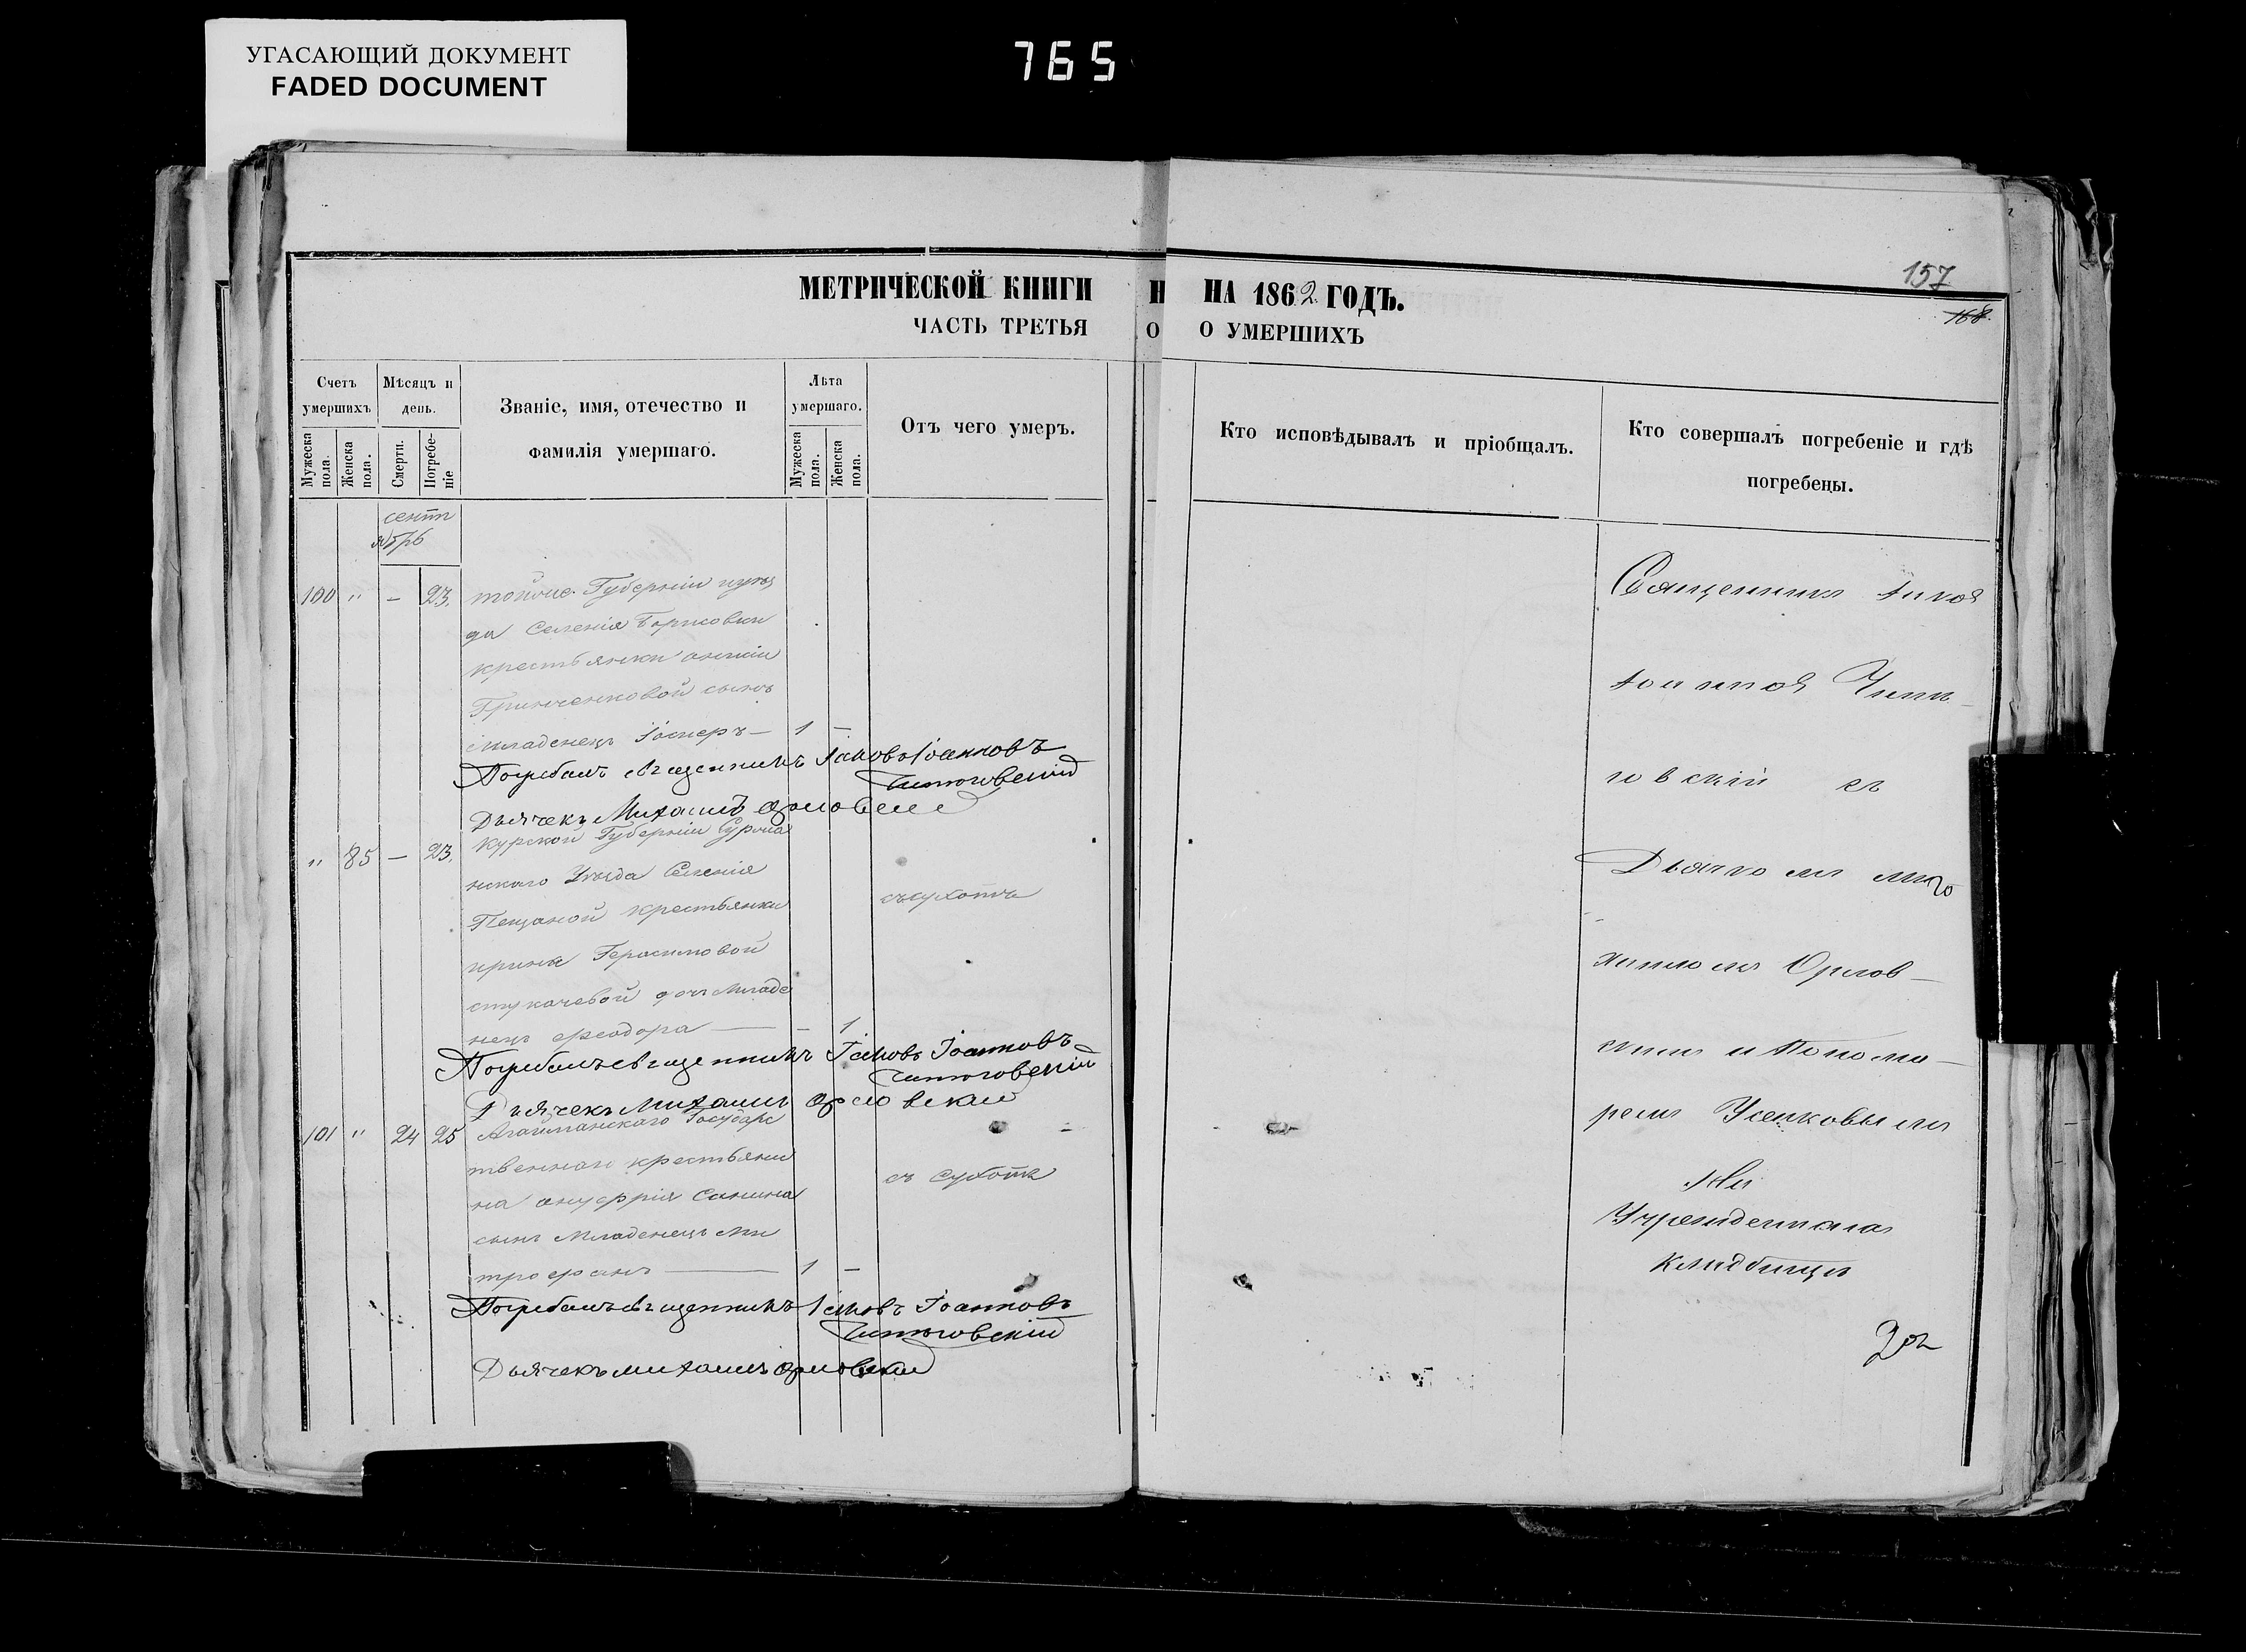 УГАСАЮЩИЙ ДОКУМЕНТ
FADED DOCUMENT
765
МЕТРИЧЕСКОЙ КНИГИ
ЧАСТЬ ТРЕТЬЯ
Счетъ умершихъ
Мужеска пола.
Женска пола.
Мѣсяцъ и день.
Смерти.
Погребеніе
Званіе, имя, отечество и
фамилія умершаго.
Лѣта умершаго.
Мужеска пола.
Женска пола.
Отъ чего умеръ.
сентя
бръ
100 " - 23. Губерніи
да Селенія Борисовки
крестьянки
Гринченковой сынъ
младенецъ — 1 —
Погребалъ священникъ Іаковъ Іоанновъ
Дьячекъ Михаилъ Орловскій
" 85 — 23. Курской Губерніи
нскаго Уѣзда Селенія
Песчаной крестьянки
съ сухотъ
ирина Герасимовой
дочь младе
нецъ феодора — — 1
Погребалъ священникъ Іаковъ Іоанновъ
Дьячекъ Михаилъ Орловскій
101 " 24 25 Агайманскаго Государс
твеннаго крестьяни
съ сухотъ
на онуфрія Санина
сынъ младенецъ ми
трофанъ — 1 —
Погребалъ священникъ Іаковъ Іоанновъ
Дьячекъ михаилъ орловскій
НА 1862 ГОДЪ.
О УМЕРШИХЪ
157
168.
Кто исповѣдывалъ и пріобщалъ.
Кто совершалъ погребеніе и гдѣ
погребены.
Священникъ Іаковъ
Іоанновъ
говскій съ
Дьячкомъ
хаиломъ Орлов-
скимъ и Понома-
ремъ
На
Учрежденномъ
кладбищѣ